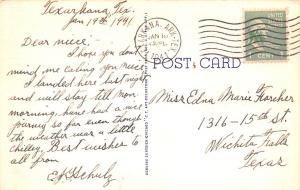 Texarkana, Tex.
Jan 19th 1941
Dear miece:
I hope you don't
mind me calling you Niece
I landed here last night
and will stay till Mon
morning, have had a nice
journey so far even though
the weather was a little
chilley. Best wishes to
all from
EJ Schulz
TEXARKANA, ARK.-TEX.
JAN 19
1941
UNITED
1 CENT
POST CARD
Miss Edna Marie Karcher
1316-15th St.
Wichita Falls
Texas